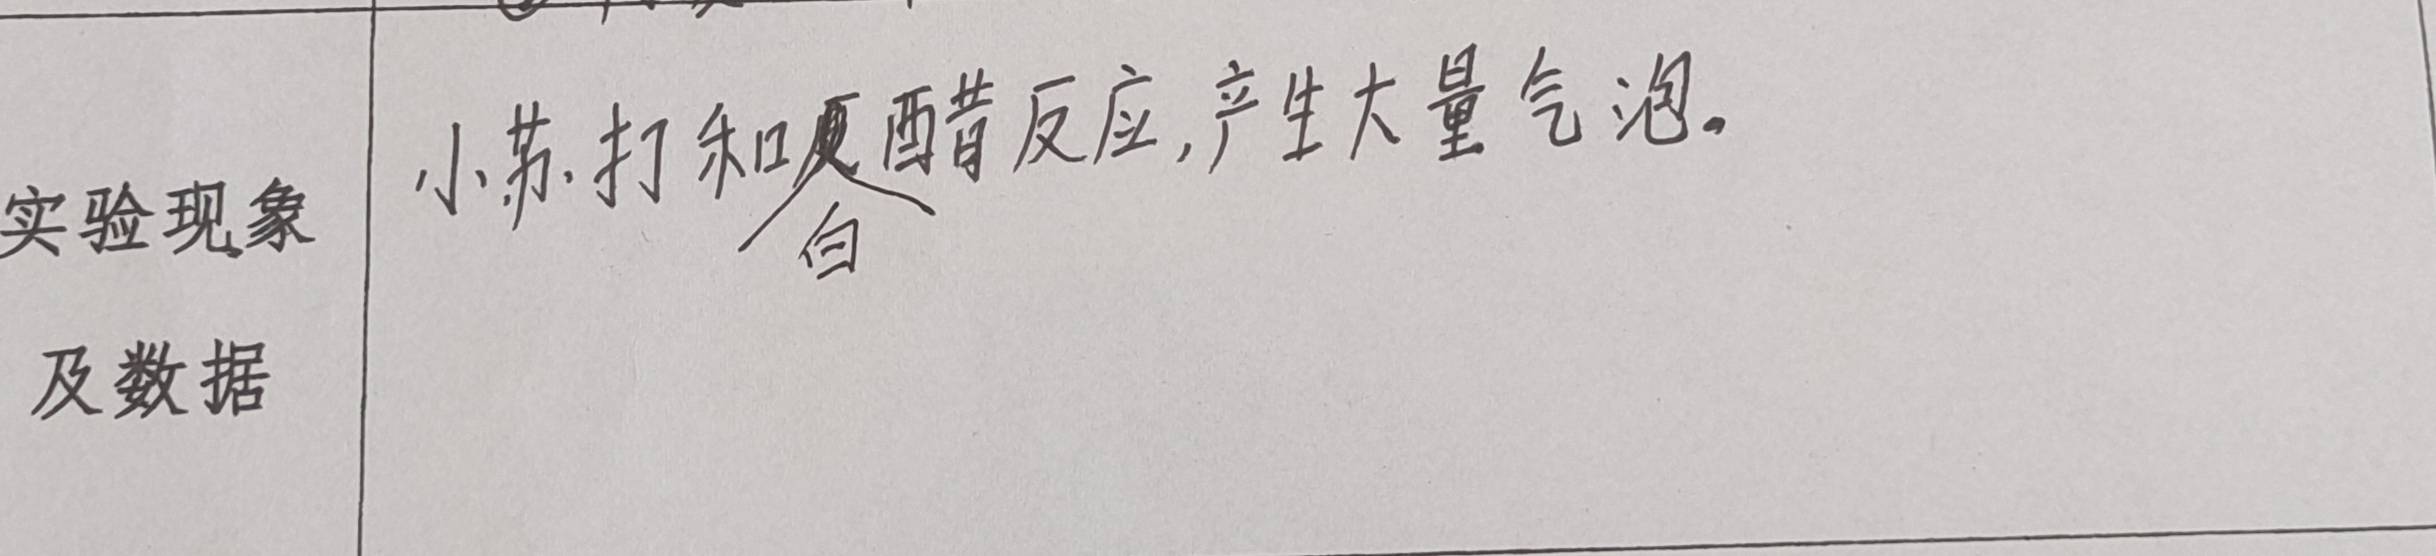 实验现象
及数据
小苏打和白醋反应,产生大量气泡。